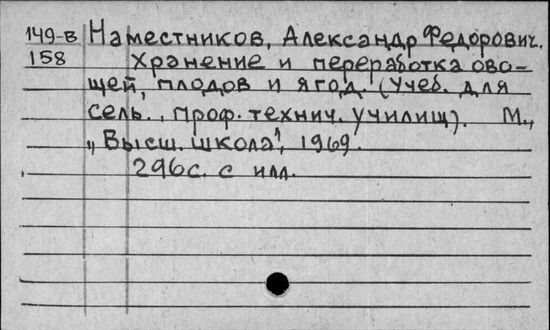 149-в Наместников, Александр Федорович.
158 Хранение и переработка ово-
щей, плодов и ягод. (Учеб. для
сель., проф. технич. училищ). М.,
„Высш. школа", 1969.
296с. с илл.